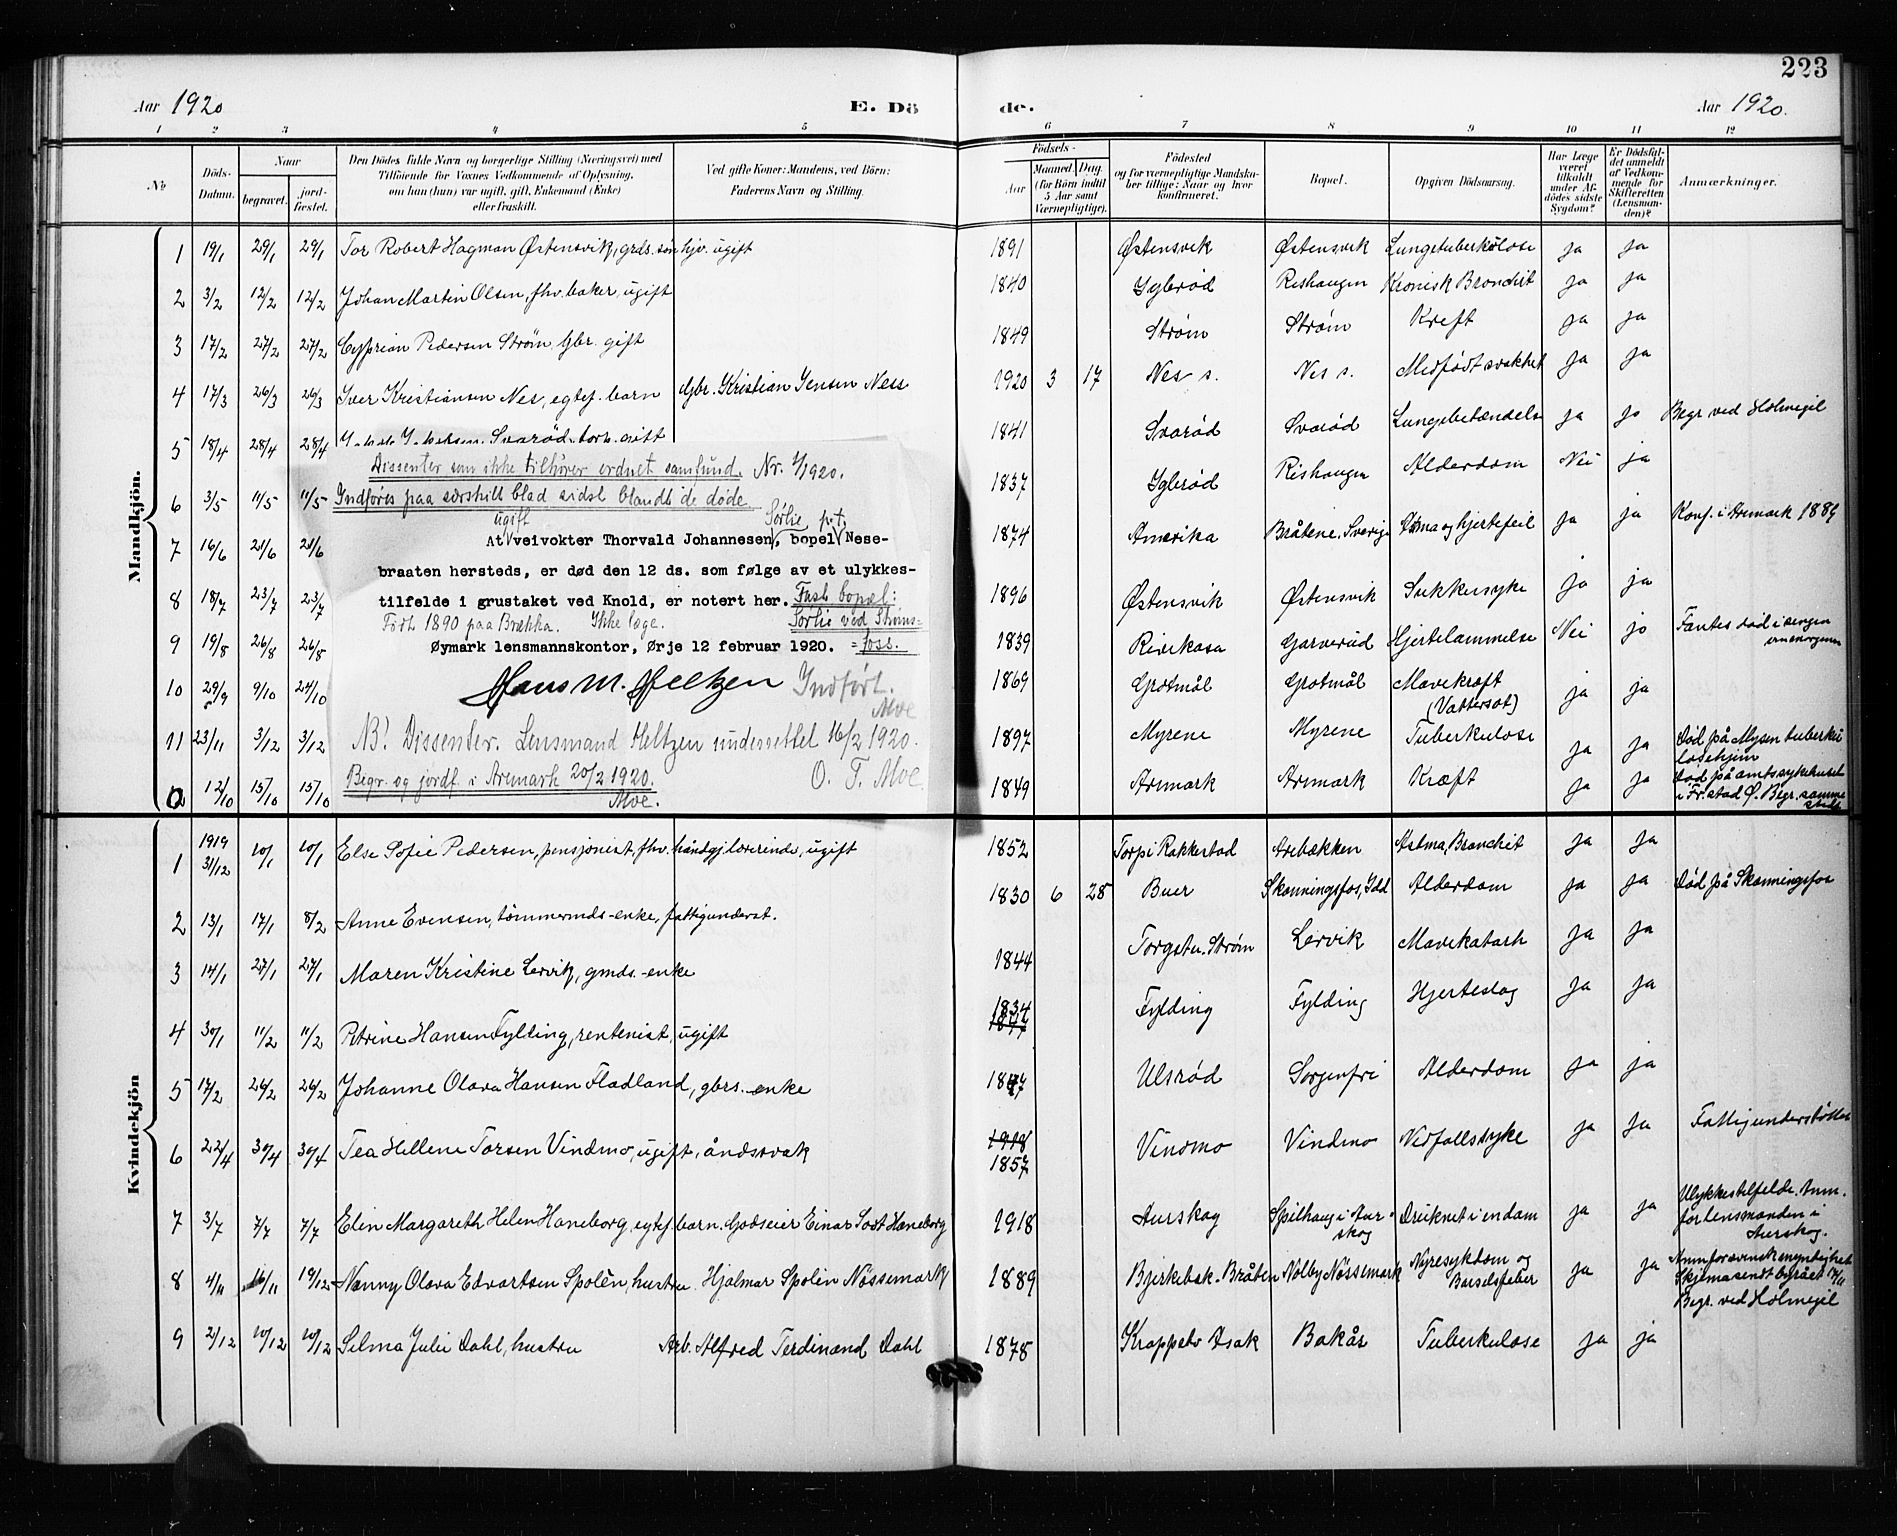 223
Aar 1920 E. Dö de. Aar 1920.
1 2 3 4 5 6 7 8 9 10 11 12
No
Döds-Datum.
Naar
begravet.
jord-fæstet.
Den Dödes fulde Navn og borgerlige Stilling (Næringsvei) med
Tilföiende for Voxnes Vedkommende af Oplysning,
om han (hun) var ugift, gift, Enkemand (Enke)
eller fraskilt.
Ved gifte Koner: Mandens, ved Börn:
Faderens Navn og Stilling.
Födsels-
Aar
Maaned. Dag.
(for Börn indtil
5 Aar samt
Værnepligtige).
Födested
og for værnepligtige Mandska-
ber tillige: Naar og hvor
konfirmeret.
Bopæl.
Opgiven Dödsaarsag.
Har Læge
været
tilkaldt
under Af-
dödes sidste
Sygdom?
Er Dödsfal-
det anmeldt
af Vedkom-
mende for
Skifteretten
(Lensman-
den)?
Anmærkninger.
Mandkjön.
1 19/1 29/1 29/1 Tor Robert Hagman Østensvik, grds. søn hjv. ugift 1891 Østensvik Østensvik Lungetuberkulose ja ja
2 3/2 12/2 12/2 Johan Martin Olsen, fhv. baker, ugift 1840 Ygbrød Rishaugen Kronisk Bronchit ja ja
3 17/2 27/2 27/2 Cyprian Pedersen Strøm, Gbr. gift 1849 Strøm Strøm Kreft ja ja
4 17/3 26/3 26/3 Iver Kristiansen Nes, egtef. barn Gbr. Kristian Jensen Ness 1920 3 17 Nes s. Nes s. Medfødt svakhet ja ja
5 18/4 28/4 28/4 Svarød gift 1841 Svarød Svarød Lungebetændelse ja ja Begr. ved Holmegil
6 3/5 11/5 11/5 1837 Ygbrød Rishaugen Alderdom Nei ja
7 16/6 21/6 21/6 1874 Amerika Bråtene, Sverige og hjertefeil ja ja Konf. i Aremark 1889
8 18/7 23/7 23/7 1896 Østensvik Østensvik Sukkersyke ja ja
9 19/8 26/8 26/8 1839 Rivikasa Garverud Hjertelammelse Nei ja Fantes død i sengen
10 29/9 9/10 24/10 1869 Grotmål Grotmål Mavekræft (Vattersot) ja ja
11 23/11 3/12 3/12 1897 Myrene Myrene Tuberkulose ja ja Død på Mysen tuberkuløsehjem
12/10 15/10 15/10 1849 Aremark Aremark Kræft ja ja Død på amtssykehuset
i Fr.stad Ø. Begr. samme sted
Dissenter som ikke tilhører ordnet samfund. Nr. 1/1920.
Indføres paa særskilt blad sidst blandt de døde
ugift Sørlie p.t.
At veivokter Thorvald Johannesen, bopel Nese-
braaten hersteds, er død den 12 ds. som følge av et ulykkes-
tilfelde i grustaket ved Knold, er notert her. Fast bopæl:
Født 1890 paa Brækka. Ikke læge. Sørlie ved Strøms-
Øymark lensmannskontor, Ørje 12 februar 1920. =foss.
Hans M. Meltzen Indført. Moe
NB! Dissenter. Lensmand Meltzen underrettet 16/2 1920.
Begr. og jordf. i Aremark 20/2 1920. O. T. Moe
Moe.
Kvindekjön
1 1919 31/12 10/1 10/1 Else Sofie Pedersen, pensjonist, fhv. håndgj. lærerinde, ugift 1852 Torp i Rakkestad Arebækken Astma, Bronchit ja ja
2 13/1 17/1 8/2 Anne Evensen, tømmermds-enke, fattigunderst. 1830 6 28 Buer Skonningsfos, Idd Alderdom ja ja Død på Skonningsfos
3 14/1 27/1 27/1 Maren Kristine Lervik, gmds.-enke 1844 Torgstu. Strøm Lervik Mavekatarh ja ja
4 30/1 11/2 11/2 Petrine Hansen Fylding, rentenist, ugift 1834 Fylding Fylding Hjerteslag ja ja
5 17/2 26/2 26/2 Johanne Olava Hansen Fladland, gbrs.-enke 1847 Ulsrød Sorgenfri Alderdom ja ja
6 22/4 30/4 30/4 Tea Hellene Torsen Vindmo, ugift, åndssvak 1918 1857 Vindmo Vindmo Nedfallssyke ja ja Fattigunderstøttet
7 3/7 7/7 7/7 Elin Margareth Helen Haneborg, egtef. barn. Godseier Einar Sost Haneborg 1918 Aurskog Spilhaug i Aurskog Druknet i en dam ja ja Ulykkestilfelde. Anm.
for lensmanden i
Aurskog.
8 4/11 16/11 19/12 Nanny Olava Edvartsen Spolén, hustru Hjalmar Spolén Nössemark 1889 Bjerkebak. Bråten Nolby Nössemark Nyresykdom og Barselsfeber ja ja Anm. for svensk myndighet
Skjema sendt byrået 17/11
Begr. ved Holmegil
9 2/12 10/12 10/12 Selma Julie Dahl, hustru Arb. Alfred Ferdinand Dahl 1878 Krappsto Asak Bakår Tuberkulose ja ja